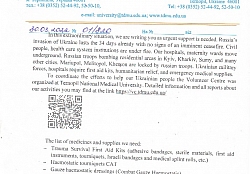 тел. +38 (0352) 52-44-92, Ukraine, 46001
fax: +38 (0352) 52-41-83
e-mail: university@tdmu.edu.ua, http://www.tdmu.edu.ua
In this extraordinary situation, we are writing you as urgent support is needed. Russia's
invasion of Ukraine lasts the 34 days already with no signs of an imminent ceasefire. Civil
people, health care system institutions are under fire. Our hospitals, maternity wards move
underground. Russian troops bombing residential areas in Kyiv, Kharkiv, Sumy, and many
other cities. Mariupol, Melitopol, Kherson are locked by invasion troops. Ukrainian military
forces, hospitals require first aid kits, humanitarian relief, and emergency medical supplies.
To coordinate the efforts to help our Ukraine people the Volunteer Centre was
organized at Ternopil National Medical University. Detailed information and all reports about
our activities you may find at the link https://vc.tdmu.edu.ua/
The list of medicines and supplies we need:
- Trauma Survival First Aid Kits (adhesive bandages, sterile materials, first aid
instruments, tourniquets, Israeli bandages and medical splint rolls, etc.)
- Hemostatic bandages
- Tourniquets CAT
- Gauze haemostatic dressings (Combat Gauze Haemostatic)